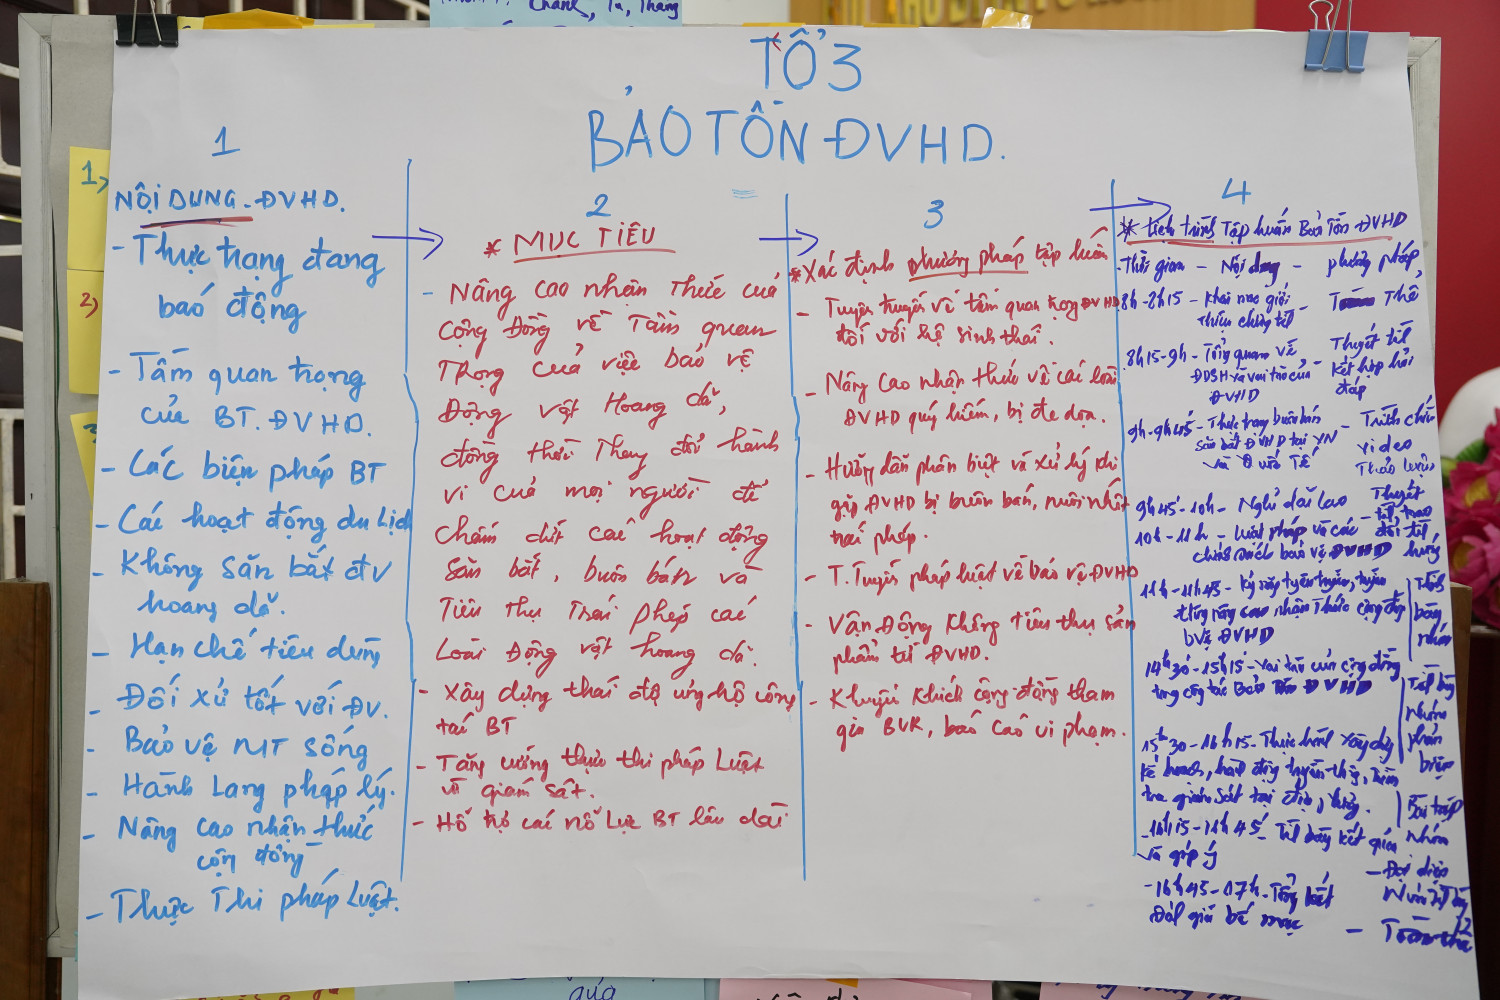 TỔ 3
BẢO TỒN ĐVHD.
1
NỘI DUNG - ĐVHD.
- Thực trạng đang
báo động
- Tầm quan trọng
của BT. ĐVHD.
- Các biện pháp BT
- Các hoạt động du lịch
- Không săn bắt đv
hoang dã.
- Hạn chế tiêu dùng
- Đối xử tốt với ĐV.
- Bảo vệ MT sống
- Hành Lang pháp lý.
- Nâng cao nhận thức
cộng đồng
- Thực Thi pháp Luật.
2
* MỤC TIÊU
- Nâng cao nhận Thức của
cộng Đồng về Tầm quan
Trọng của việc bảo vệ
Động vật Hoang dã,
đồng thời Thay đổi hành
vi của mọi người để
chấm dứt các hoạt động
săn bắt, buôn bán và
Tiêu thụ Trái phép các
Loài Động vật hoang dã.
- Xây dựng thái độ ủng hộ công
tác BT
- Tăng cường thực thi pháp Luật
và giám sát.
- Hỗ trợ các nỗ Lực BT lâu dài
3
* Xác định phương pháp tập huấn
- Tuyên truyền về tầm quan trọng ĐVHD
đối với hệ sinh thái.
- Nâng cao nhận thức về các loài
ĐVHD quý hiếm, bị đe dọa.
- Hướng dẫn phân biệt và xử lý khi
gặp ĐVHD bị buôn bán, nuôi nhốt
trái phép.
- T. Truyền pháp luật về bảo vệ ĐVHD
- Vận Động không tiêu thụ sản
phẩm từ ĐVHD.
- Khuyến khích cộng đồng tham
gia BVR, báo cáo vi phạm.
4
* Lịch trình Tập huấn Bảo Tồn ĐVHD
- Thời gian - Nội dung - phương pháp
8h - 8h15 - Khai mạc giới - Thể
8h15 - 9h - Tổng quan về - Thuyết
ĐDSH và vai trò của kết hợp hỏi
ĐVHD đáp
9h - 9h45 - Thực trạng buôn bán - Trình chiếu
săn bắt ĐVHD tại VN video
và Quốc Tế Thảo luận
9h45 - 10h - Nghỉ giải lao Thuyết
10h - 11h - Luật pháp và các
chính sách bảo vệ ĐVHD
11h - 11h45 - Kỹ năng tuyên truyền,
nâng cao nhận Thức cộng đồng
ĐVHD
14h30 - 15h15 - Vai trò của cộng đồng
trong công tác Bảo Tồn ĐVHD
nhóm
15h30 - 16h15 - Thực hành xây dựng
kế hoạch, hoạt động
tra giám sát tại Bài tập
- 16h15 - 16h45 - kết quả nhóm
và góp ý - Đại diện
- 16h45 - 17h - Tổng kết
Đánh giá bế mạc